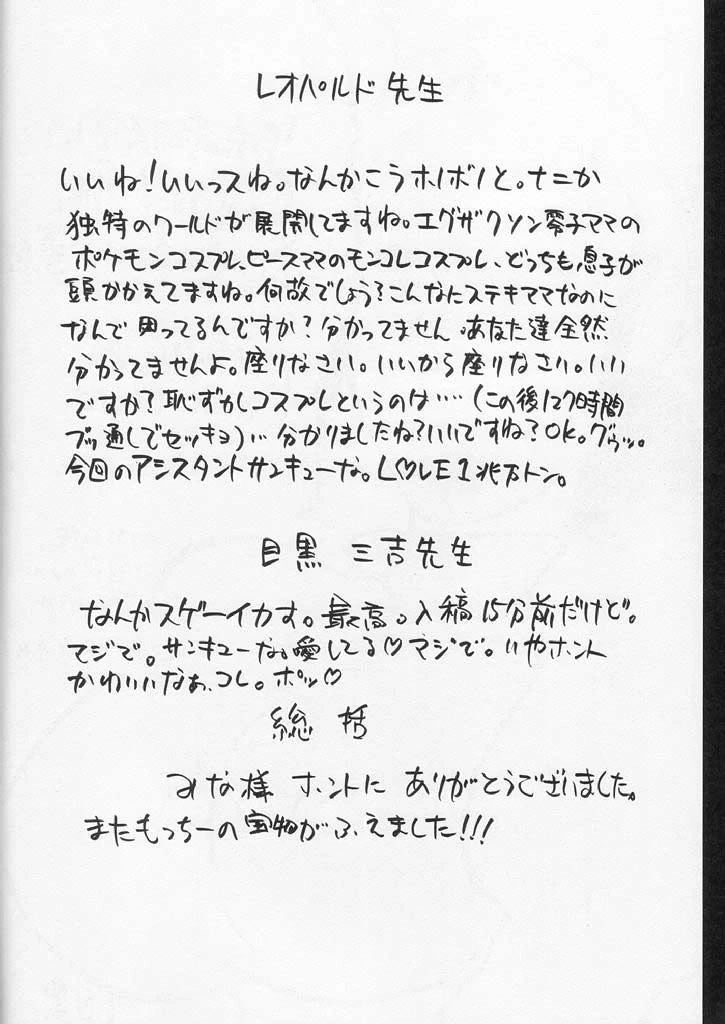 レオパルド先生
いいね!いいっスね。なんかこうホノボノと。ナニか
独特のワールドが展開してますね。エグザクソン零子ママの
ポケモンコスプレ、ピースママのモンコレコスプレ、どっちも息子が
頭かかえてますね。何故でしょう?こんなにステキママなのに
なんで困ってるんですか?分かってません。あなた達全然
分かってませんよ。座りなさい。いいから座りなさい。いい
ですか?恥ずかしコスプレというのは…(この後127時間
ブッ通しでセッキョ)…分かりましたね?いいですね?OK。グゥッ。
今回のアシスタントサンキューな。L♡VE1兆万トン。
目黒三吉先生
なんかスゲーイカす。最高。入稿15分前だけど。
マジで。サンキューな。愛してる♡マジで。いやホント
かわいいなぁ、コレ。ポッ♡
総括
みな様 ホントに ありがとうございました。
またもっちーの宝物がふえました!!!